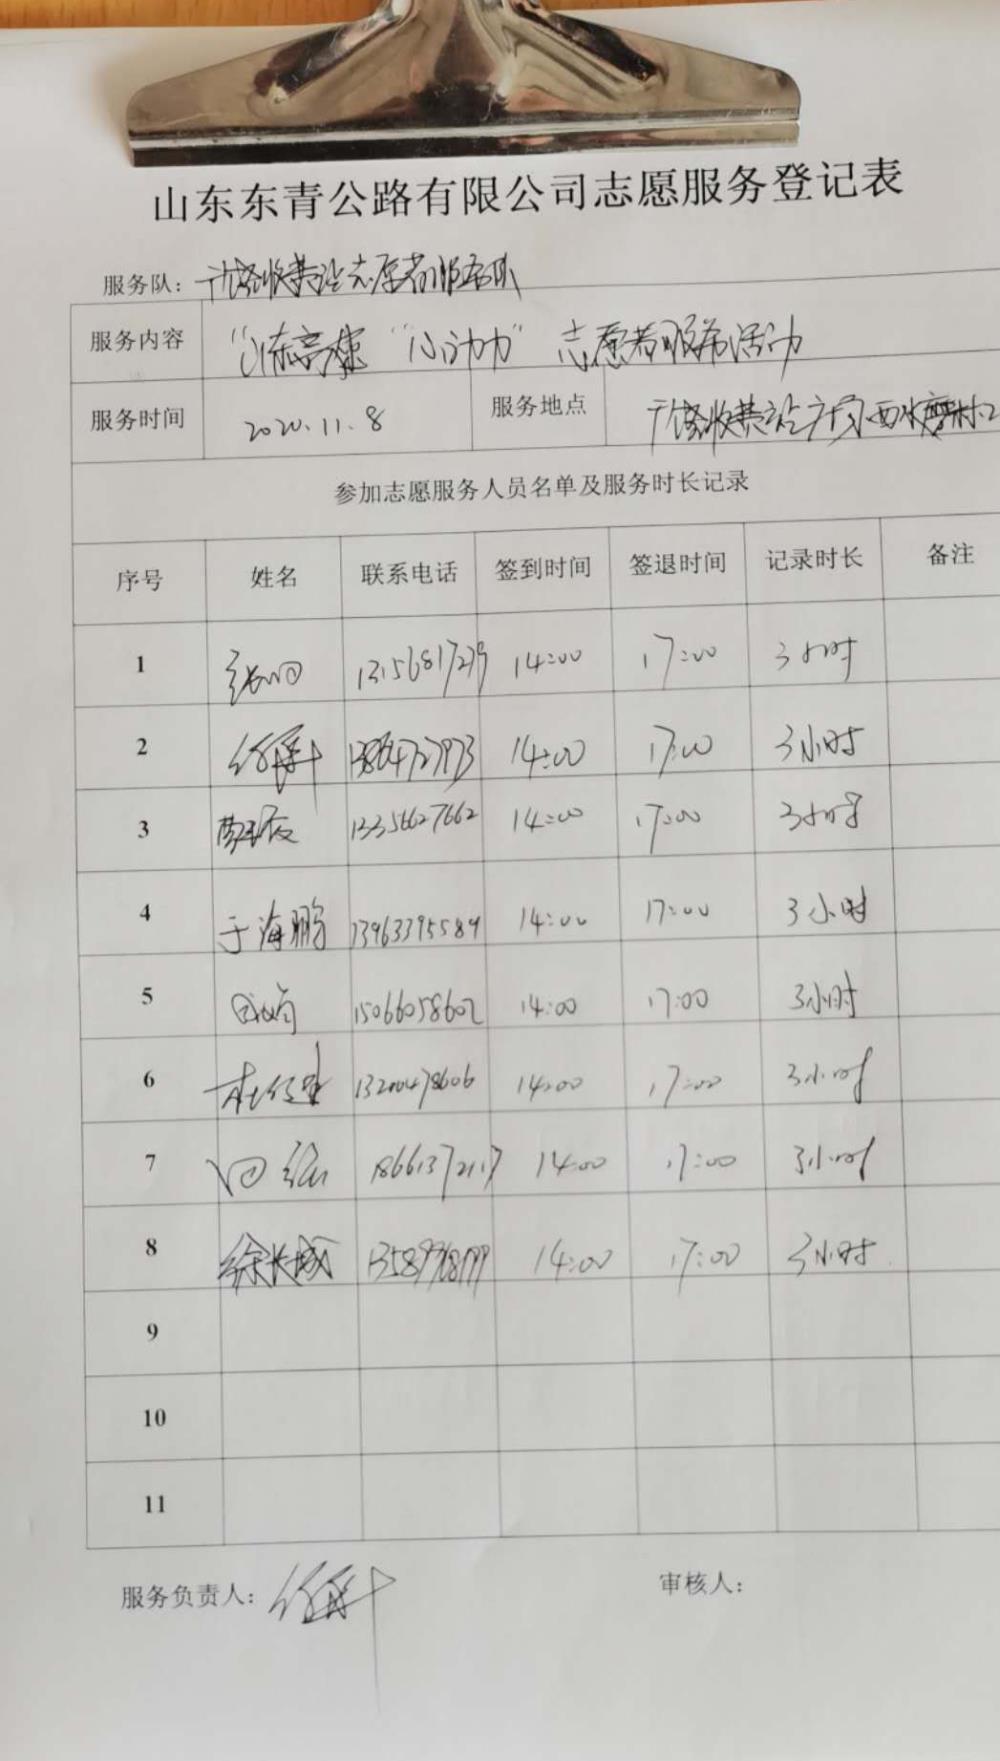 山东东青公路有限公司志愿服务登记表
服务队： 收费站志愿者服务队
服务内容 "山东高速"小动力"志愿者服务活动
服务时间 2020.11.8 服务地点 收费站 西水磨村
参加志愿服务人员名单及服务时长记录
序号 姓名 联系电话 签到时间 签退时间 记录时长 备注
1 14:00 17:00 3小时
2 14:00 17:00 3小时
3 13356627662 14:00 17:00 3小时
4 于海鹏 13963395589 14:00 17:00 3小时
5 15066058602 14:00 17:00 3小时
6 13200478606 14:00 17:00 3小时
7 18661372117 14:00 17:00 3小时
8 徐长城 14:00 17:00 3小时
9
10
11
服务负责人： 审核人：